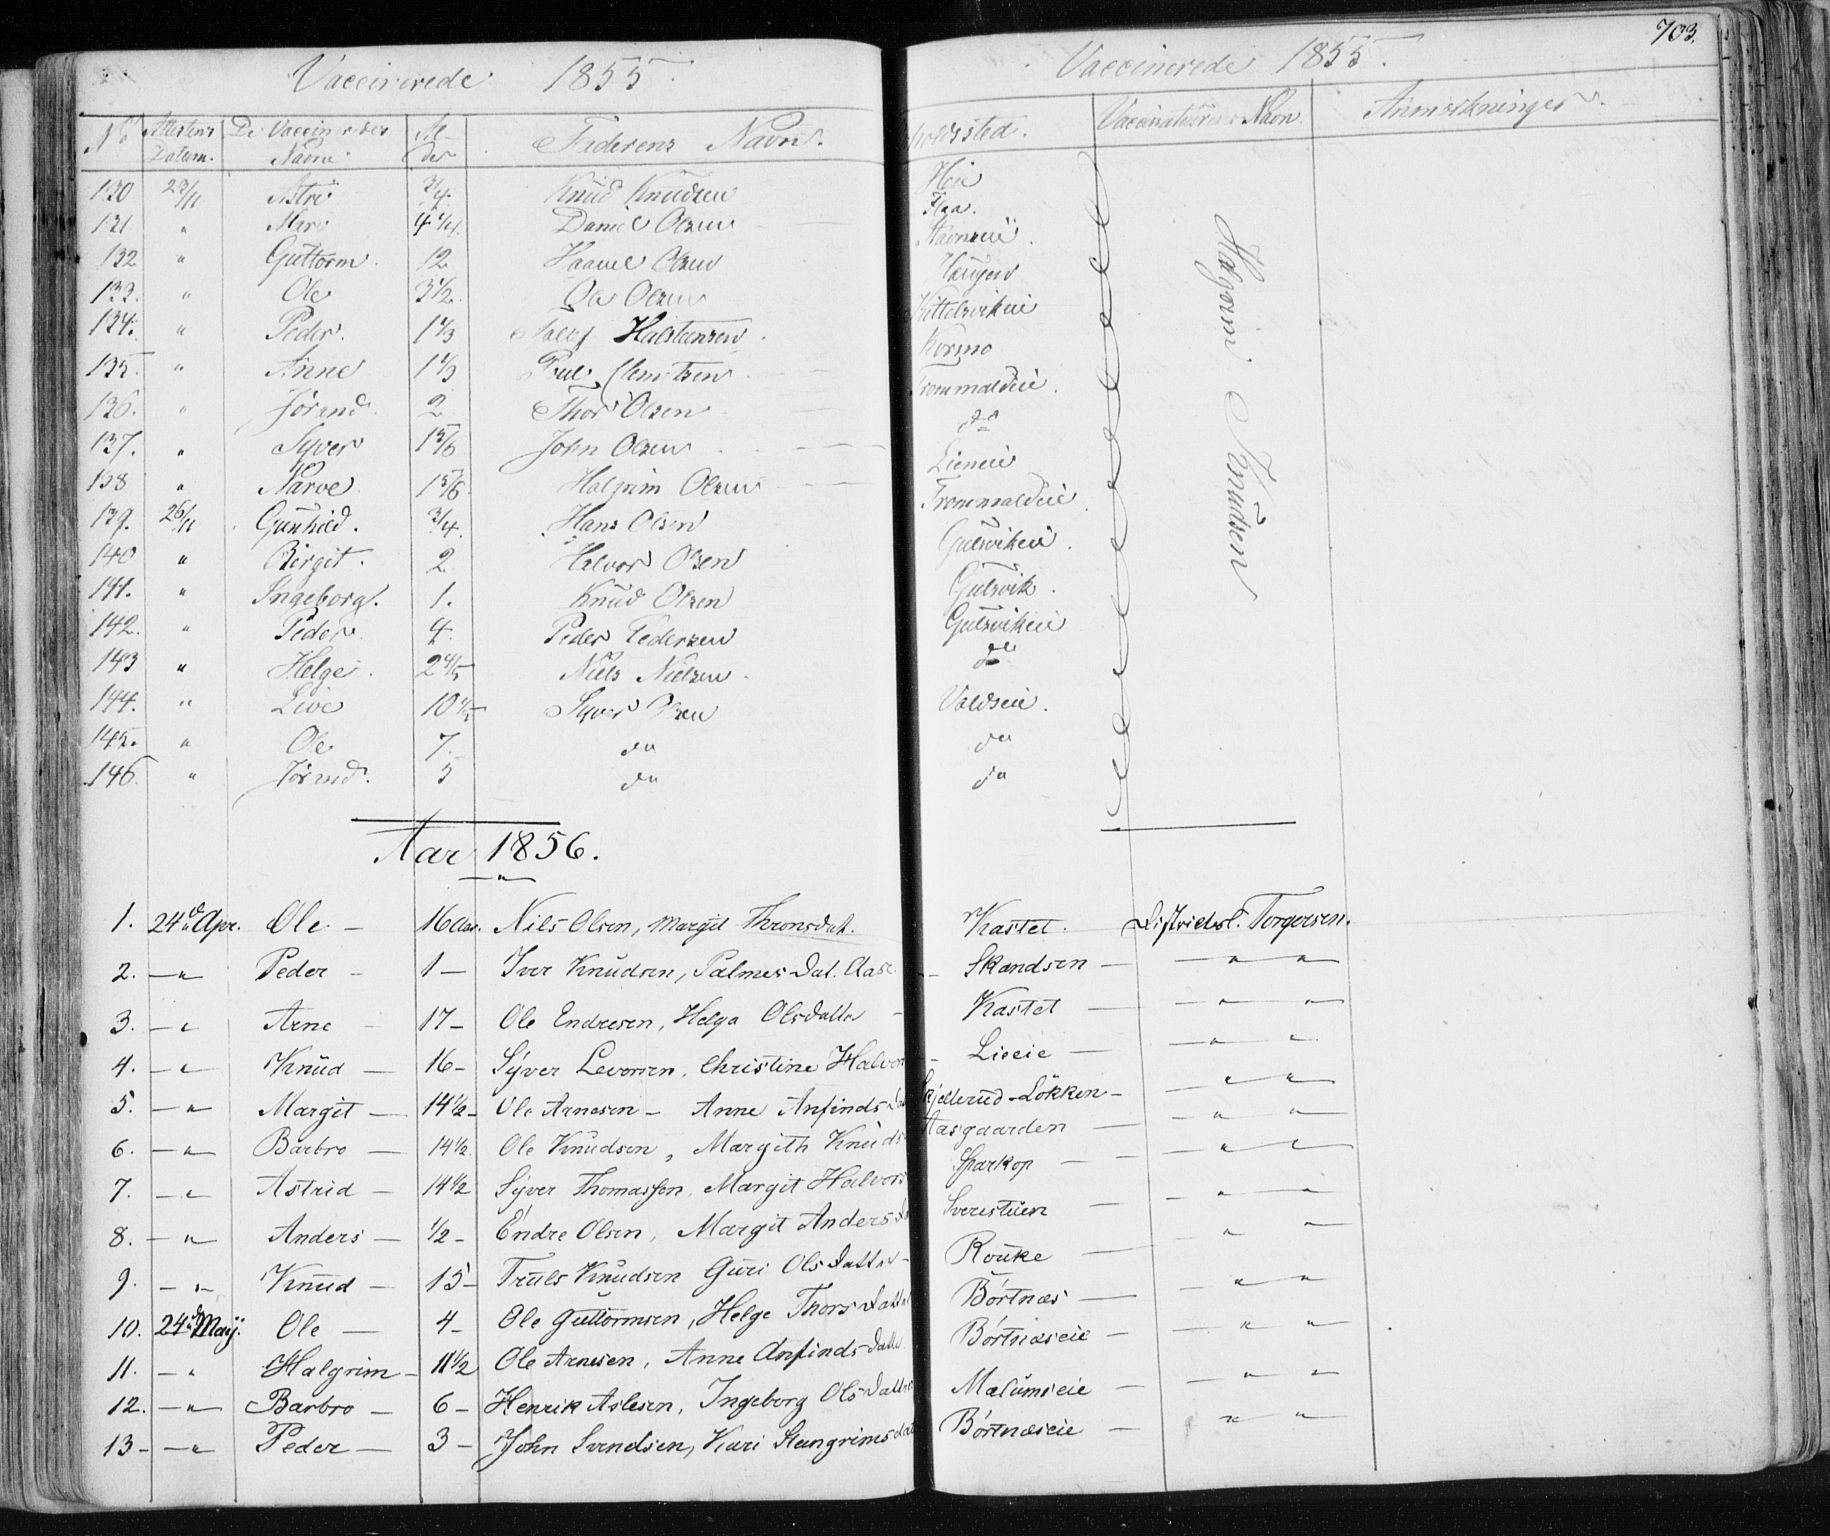 703.
Vaccinerede 1855. Vaccinerede 1855.
No Attestens Datum. De Vaccineredes Navne Al- der Faderens Navn. Opholdssted. Vaccinateurens Navn Anmærkninger.
130 23/11 Astri 3/4 Knud Knudsen Hei
131 " Mari 4 1/4 Daniel Olsen Flaa.
132 " Guttorm 12 Haavel Olsen Stavnseie
133. " Ole 3 1/2 Ole Olsen Haugen
134. " Peder 1 1/3 Halstensen Kittelsvikeie
135. " Anne 1 1/3 Poul Clemetsen Kormo
136. " Jörand 2 Thor Olsen Trommaldeie.
137. " Syver 1 5/6 John Olsen do
138 " Narve 1 5/6 Halgrim Olsen Lieneie
139. 26/11 Gunhild. 3/4 Hans Olsen Trommaldeie
140 " Birgit. 2. Halvor Olsen Gulsvikeie.
141. " Ingeborg. 1. Knud Olsen Gulsvik.
142. " Peder 4. Peder Pedersen Gulsvikeie
143 " Helge 2 4/5 Niels Nielsen do
144. " Live 10 1/2 Syver Olsen Valdseie.
145. " Ole 7. do do
146. " Jörand. 5 do do
Halgrim Knudsen
Aar 1856.
1. 24de Apr. Ole - 16 Aar. Nils Olsen, Margit Thronsdat. Kastet. Districtsl. Torgersen.
2. - " Peder - 1 - Iver Knudsen, Palmesdat. Aase - Skandsen - " "
3. - " Arne - 17 - Ole Endresen, Helga Olsdatter - Kastet - " "
4. - " Knud - 16 - Syver Levorsen, Christine Halvors - Lieeie - " "
5. - " Margit - 14 1/2 - Ole Arnesen - Anne Anfindsda Skjellerud-Løkken - " "
6. - " Barbro - 14 1/2 Ole Knudsen, Margith Knuds Aasgaarden - " "
7. - " Astrid - 14 1/2 Syver Thomassen, Margit Halvors Sparkop - " "
8. - " Anders - 1/2 - Endre Olsen, Margit Andersda Sverestuen - " "
9. - " Knud - 15 - Truls Knudsen Guri Olsdatter - Rouke - "
10. 24de May. Ole - 4 - Ole Guttormsen, Helge Thorsdatter Börtnæs - " "
11. - " Halgrim - 11 1/2 Ole Arnesen, Anne Anfindsdatter Börtnæseie - " "
12. - " Barbro - 6 - Henrik Aslesen, Ingeborg Olsdatter Mælumseie - " "
13 - - " Peder - 3 - John Svendsen, Kari Stengrimsdat Börtnæseie - " "